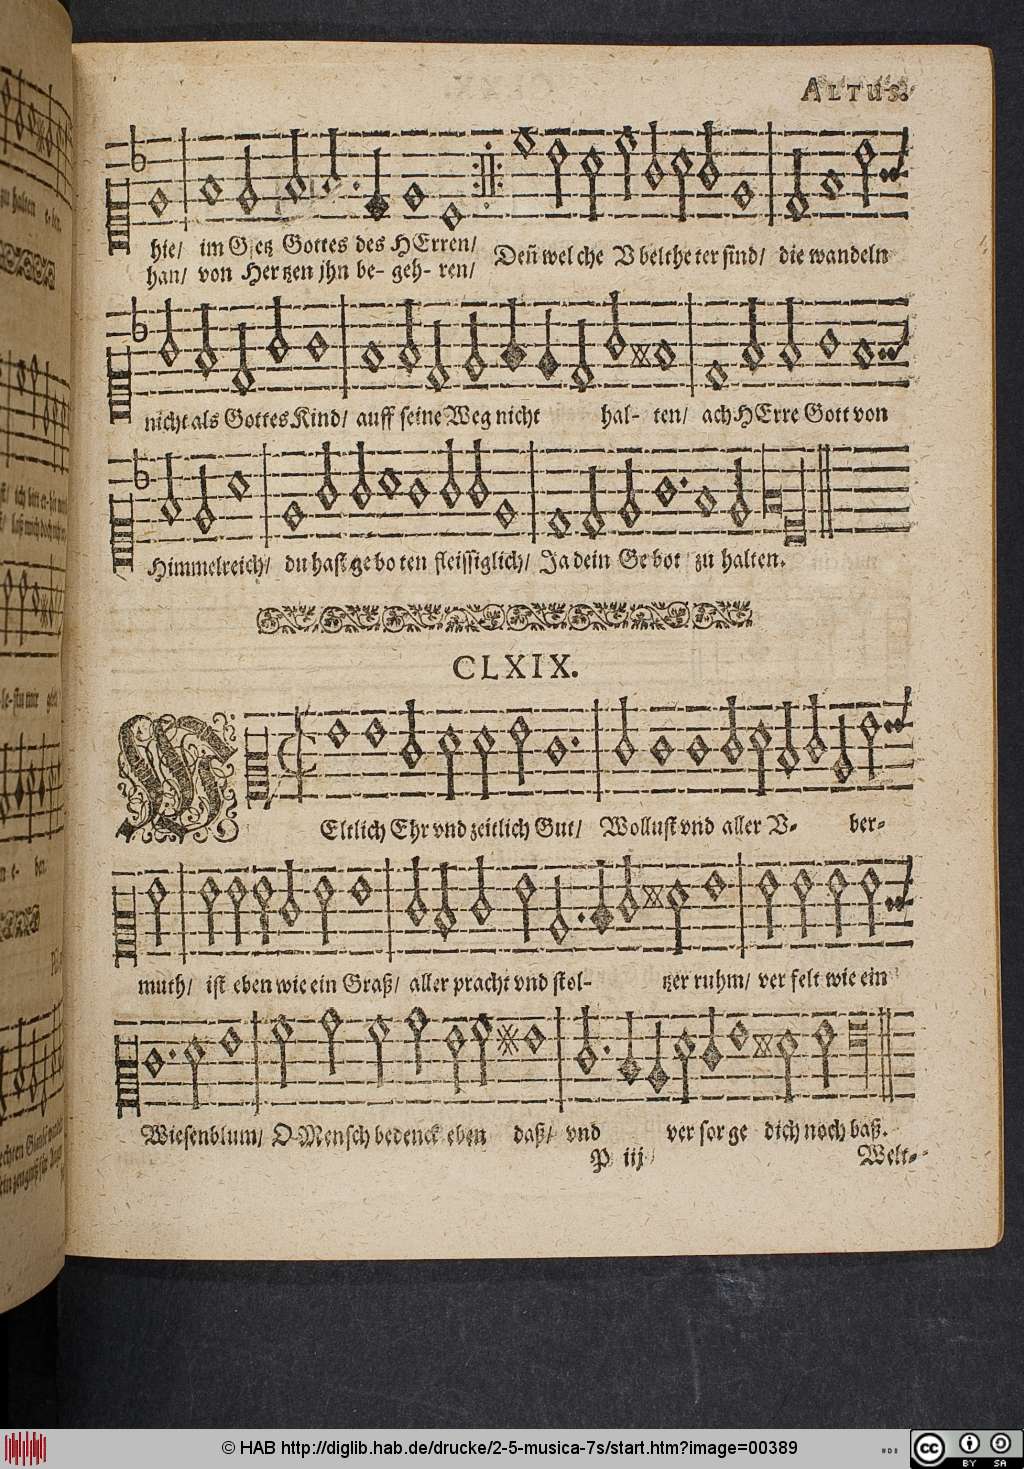 ALTUS.
hie/ im G etz Gottes des HErren/ Deñ wel che V belthe ter sind/ die wandeln
han/ von Hertzen jhn be- geh- ren/
nicht als Gottes Kind/ auff seine Weg nicht hal- ten/ ach HErre Gott von
Himmelreich/ du hast ge bo ten fleissiglich/ Ja dein Ge bot zu halten.
CLXIX.
WEltlich Ehr vnd zeitlich Gut/ Wollust vnd aller V- ber-
muth/ ist eben wie ein Graß/ aller pracht vnd stol- tzer ruhm/ ver felt wie ein
Wiesenblum/ O Mensch bedenck eben daß/ vnd ver sor ge dich noch baß.
P iij
Welt-
© HAB http://diglib.hab.de/drucke/2-5-musica-7s/start.htm?image=00389
cc BY SA